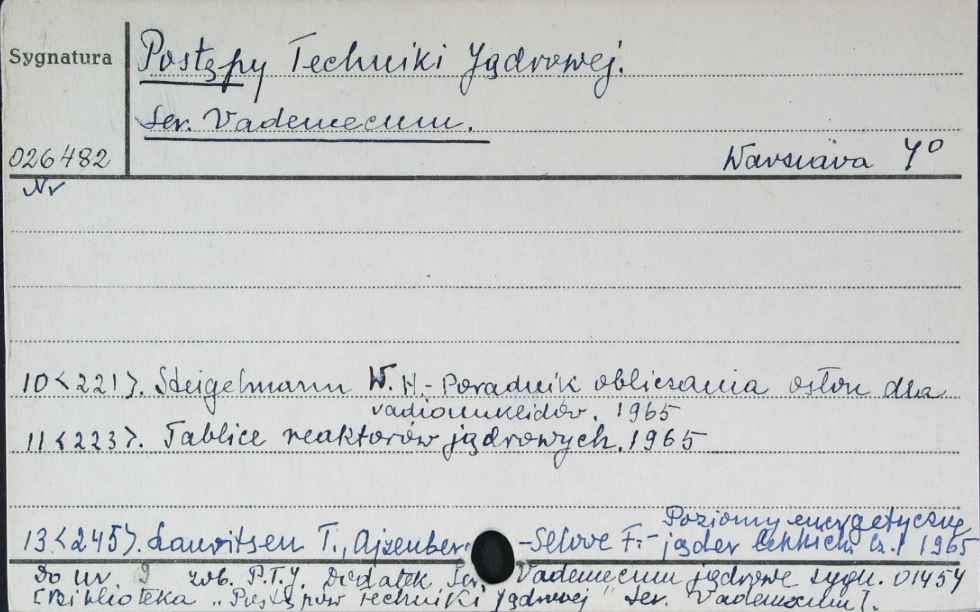 Sygnatura
Postępy Techniki Jądrowej.
Ser. Vademecum.
026482
Warszawa 4⁰
Nr
10<221>. Steigelmann W. H.- Poradnik obliczania osłon dla
radionuklidów. 1965
11<223>. Tablice reaktorów jądrowych. 1965
Poziomy energetyczne
13<245>. Lauritsen T., Ajzenber -Selove F.- jąder lekkich cz. 1 1965
Do nr. 9 zob. P.T.J. Dodatek Ser. Vademecum jądrowe sygn. 01454
[Biblioteka "Postępów Techniki Jądrowej" Ser. Vademecum].